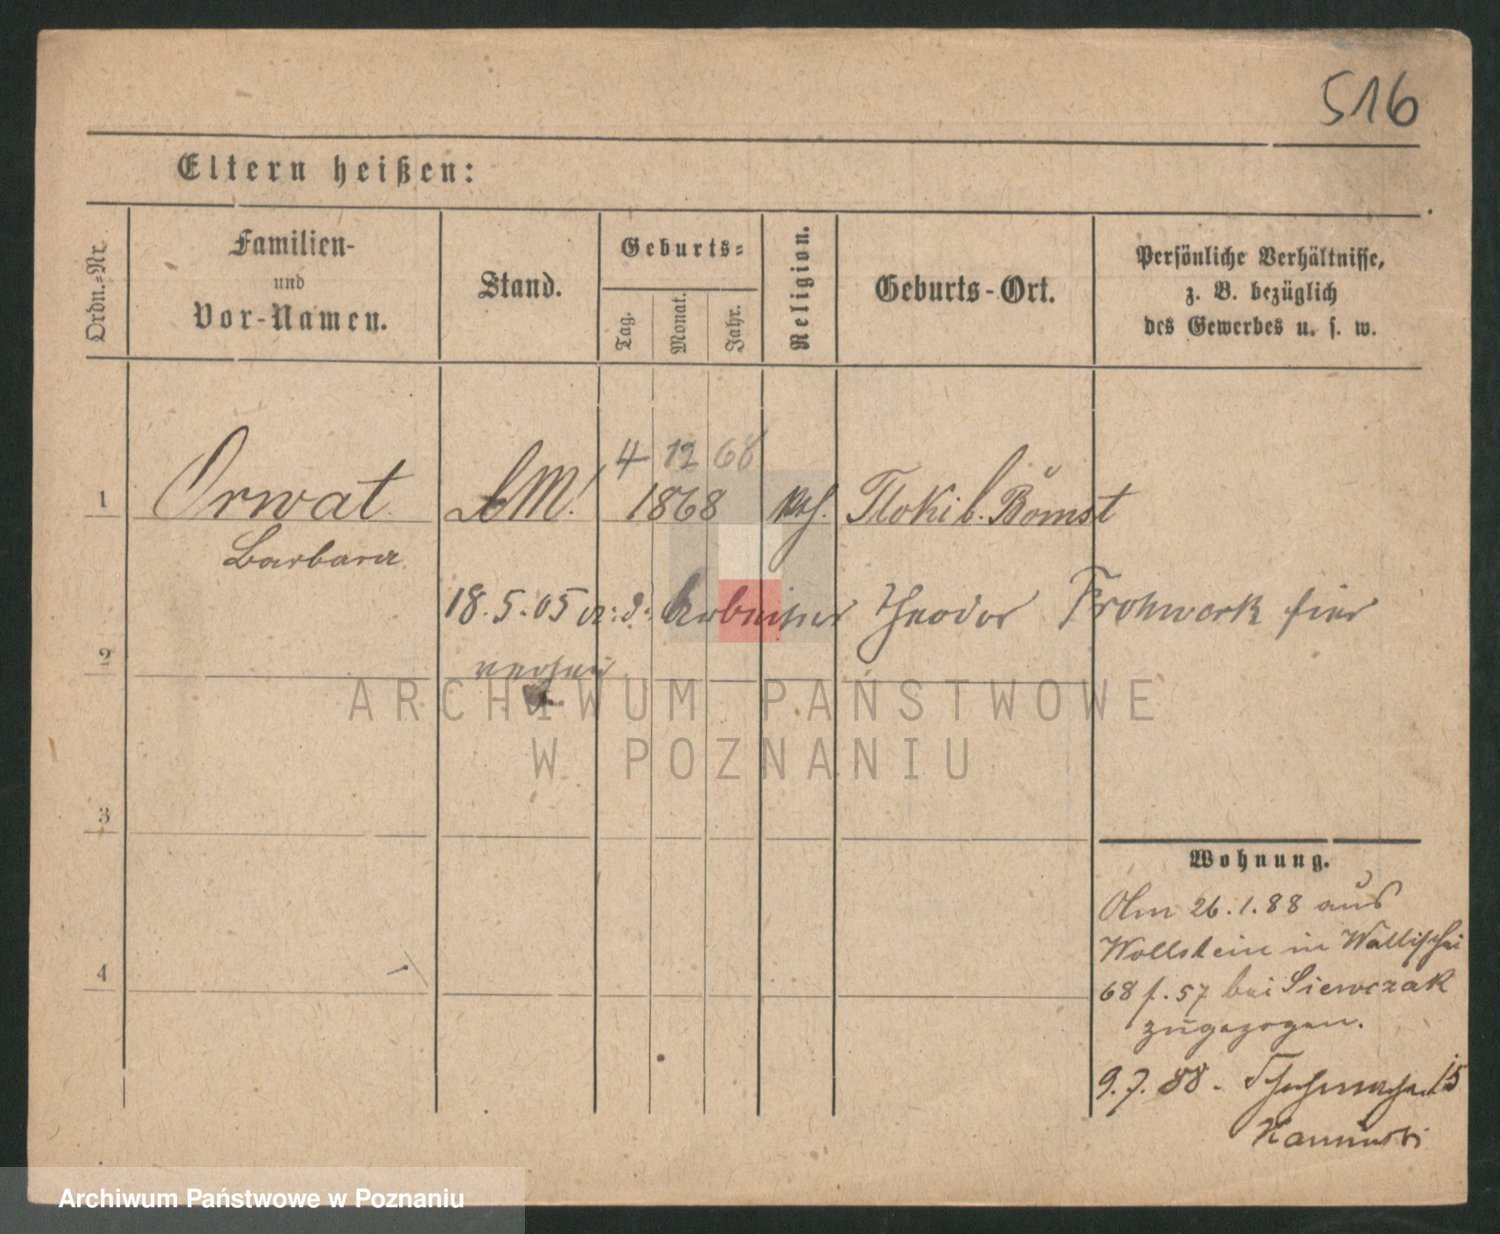 516
Eltern heißen:
Ordn.-Nr.
Familien-
und
Vor-Namen.
Stand.
Geburts-
Tag.
Monat.
Jahr.
Religion.
Geburts-Ort.
Persönliche Verhältnisse,
z. B. bezüglich
des Gewerbes u. s. w.
4 12 68
1 Orwat 1868 kth. Tloki b. Bomst
Barbara
18.5.05 Arbeiter Theodor Frohwerk hier
2
3
4
Wohnung.
Am 26.1.88 aus
Wollstein in Wallischei
68 f. 57 bei Siewczak
zugezogen.
9.7.88 - 15
Kaminski
ARCHIWUM PAŃSTWOWE
W POZNANIU
Archiwum Państwowe w Poznaniu